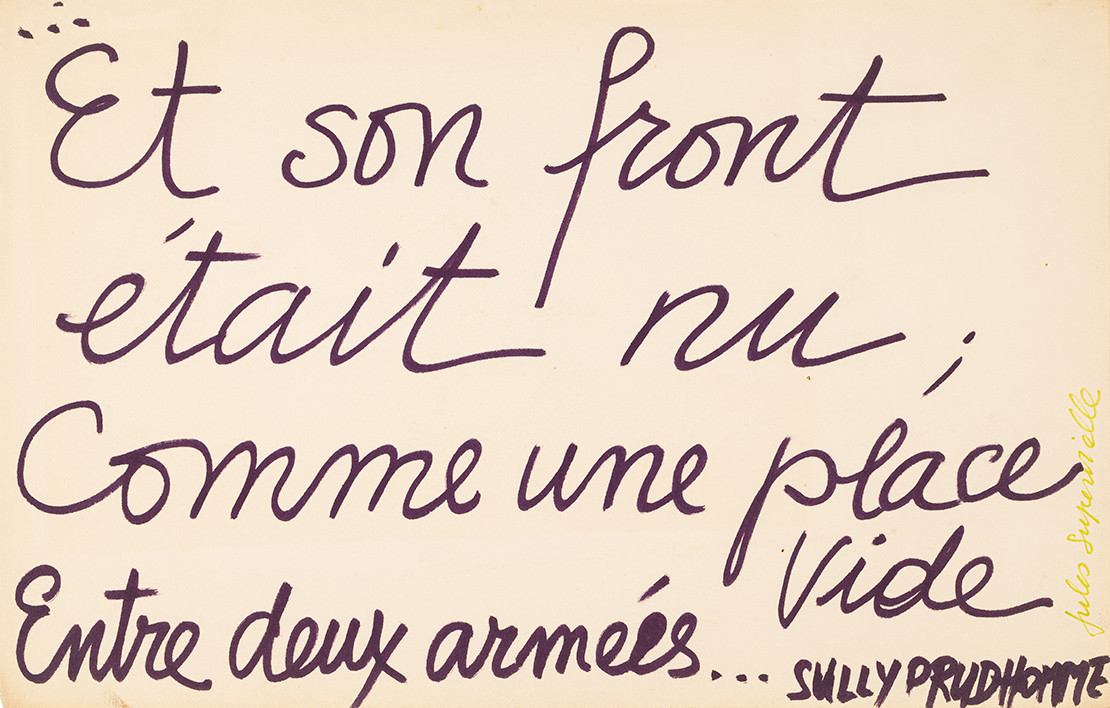 ...
Et son front
était nu ;
Comme une place
vide
Entre deux armées...
SULLY PRUDHOMME
Jules Supervielle